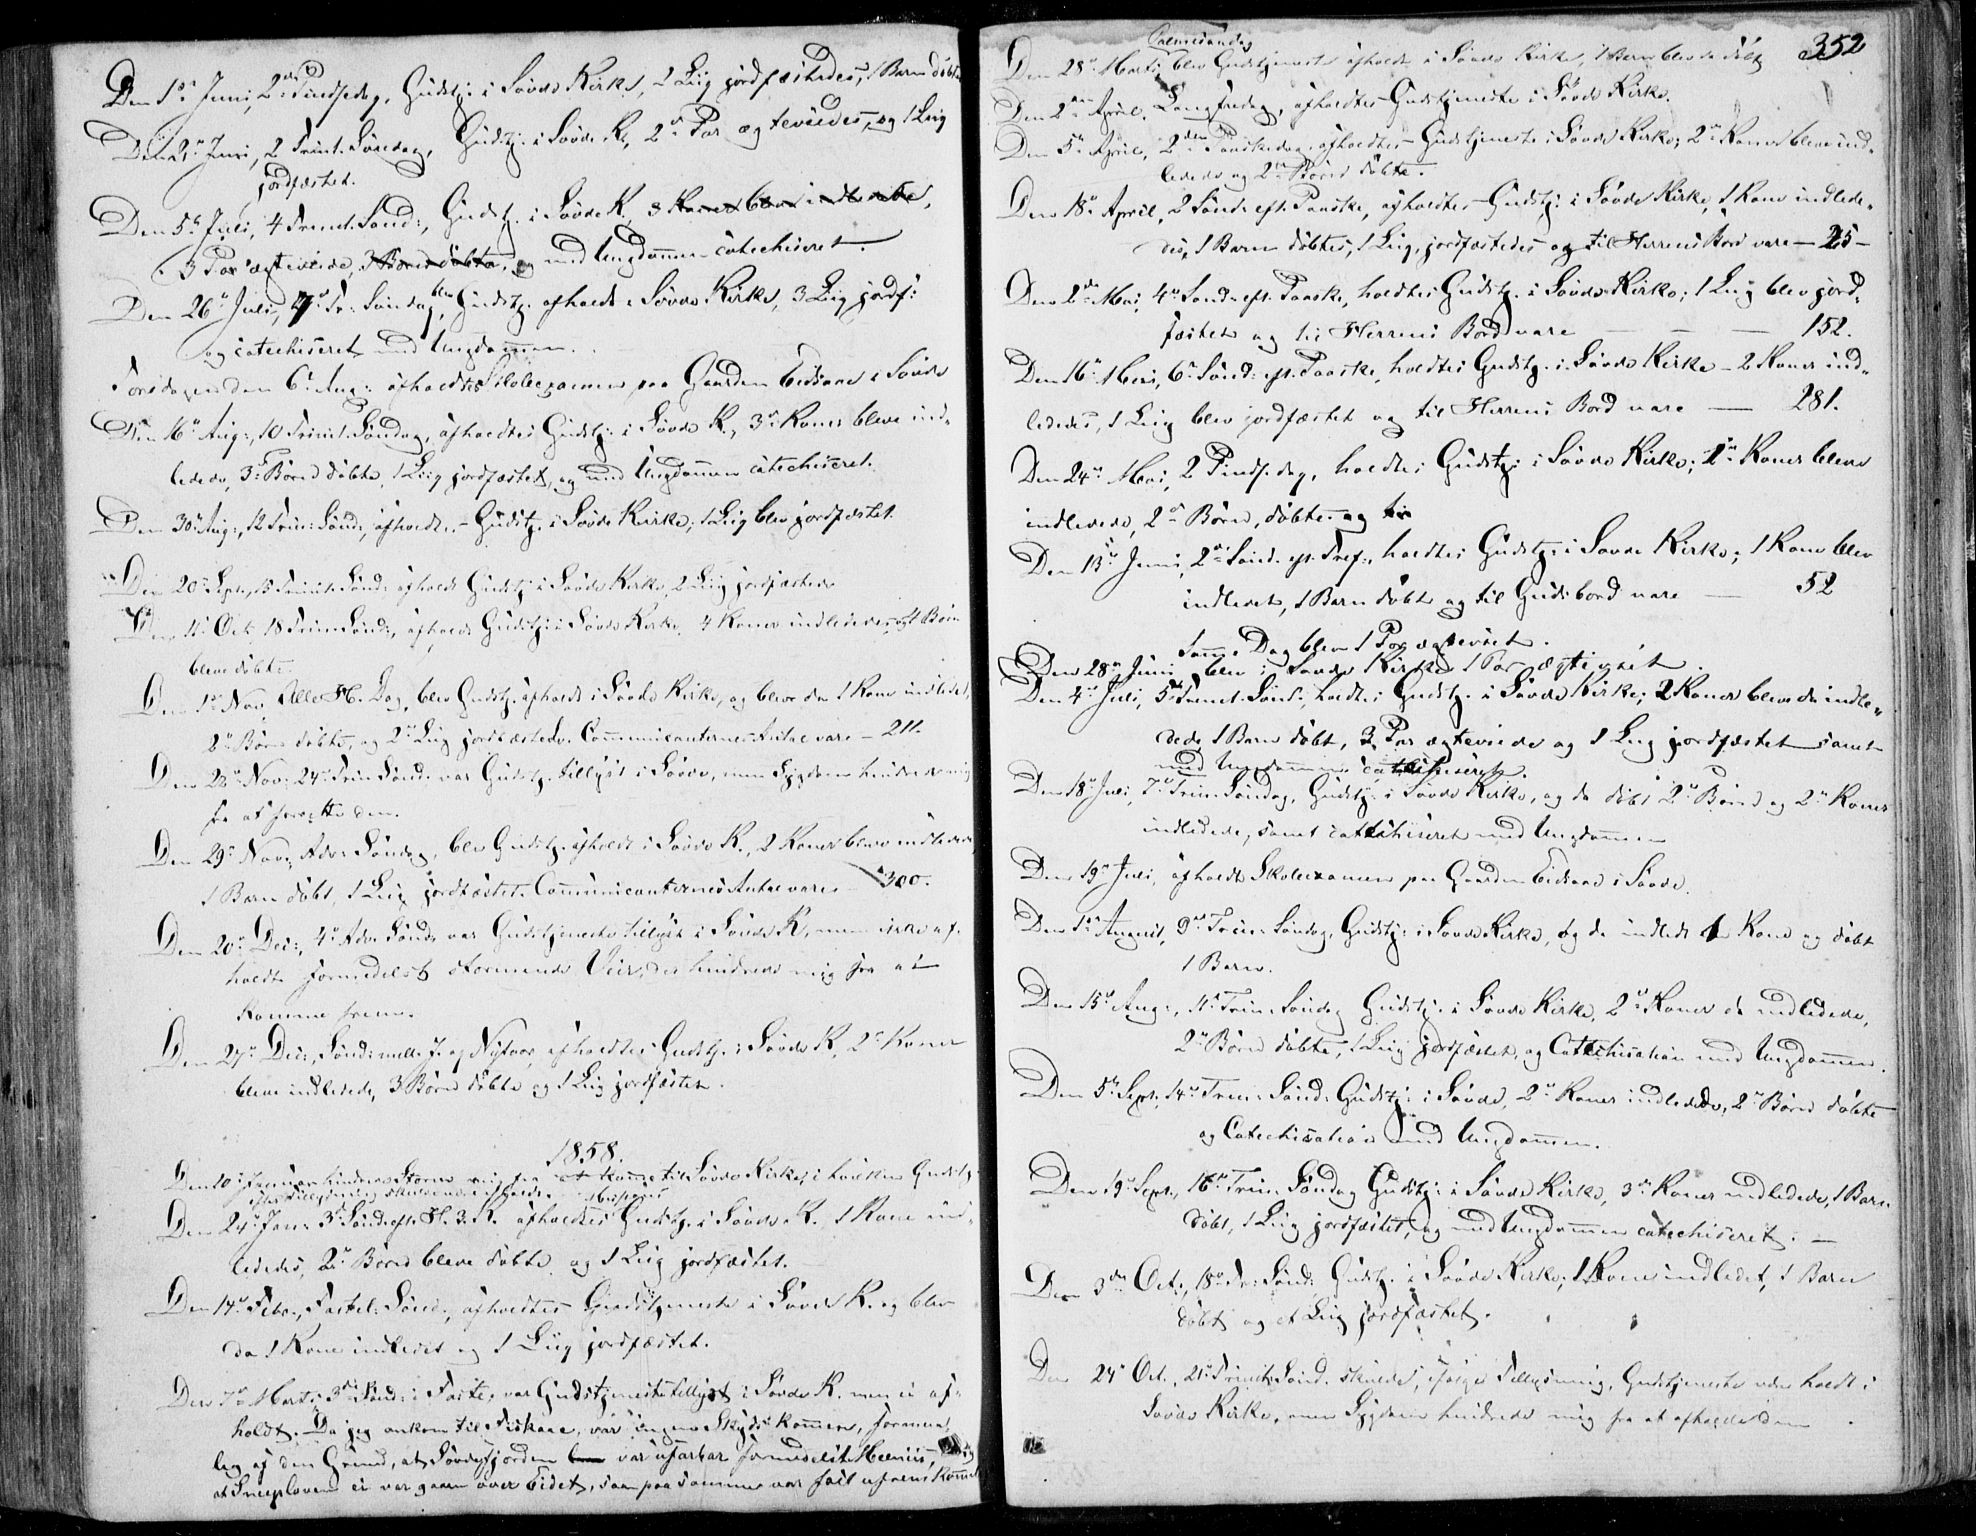 Den 1ste Juni, 2den Pindsedag, Gudstj. i Søvde Kirke, 2 Liig jordfæstedes, 1 Barn døbt.
Den 21de Juni, 2 Trinit. Søndag, Gudstj. i Søvde K., 2de Par ægteviedes, og 1 Liig
jordfæstet.
Den 5te Juli, 4 Trinit. Sønd:, Gudstj. i Søvde K. 3 Koner bleve indledede,
3 Par ægteviede, 3 Børn døbte, og med Ungdommen catechiseret.
Den 26de Juli, 7de Tr: Søndag, blev Gudstj. afholdt i Søvde Kirke, 3 Liig jordf:
og catechiseret med Ungdommen.
Torsdagen den 6te Aug: afholdtes Skoleexamen paa Gaarden Eidsaae i Søvde
Den 16de Aug:, 10 Trinit. Søndag, afholdtes Gudstj: i Søvde K., 3de Koner bleve ind-
ledede, 3de Børn døbte, 1 Liig jordfæstet, og med Ungdommen catechiseret.
Den 30te Aug:, 12 Trin: Sønd:, afholdtes Gudstj. i Søvde Kirke; 1 Liig blev jordfæstet.
Den 20de Sept., 15 Trinit. Sønd: afholdt Gudstj i Søvde Kirke, 2 Liig jordfæstede
Den 11te Oct. 18 Trin Sønd:, afholdt Gudstj: i Søvde Kirke, 4 Koner indledede, og 4 Børn
bleve døbte
Den 1ste Nov. Alle H. Dag, blev Gudstj. afholdt i Søvde Kirke, og bleve da 1 Kone indledet,
2de Børn døbte, og 2de Liig jordfæstede. Communicanternes Antal vare – 211.
Den 22de Nov: 24de Trin Sønd: var Gudstj. tillyst i Søvde, men Sygdom hindrede mig
fra at forrette den.
Den 29de Nov:, Adv: Søndag, blev Gudstj. afholdt i Søvde K., 2 Koner bleve indledede,
1 Barn døbt, 1 Liig jordfæstet. Communicanternes Antal vare – 300.
Den 20de Dec:, 4de Adv. Sønd: var Gudstjeneste tillyst i Søvde K, men ikke af-
holdt formedelst stormende Veir, der hindrede mig fra at
komme frem.
Den 27de Dec:, Sønd: mell. J. og Nytaar, afholdtes Gudstj. i Søvde K, 2de Koner
bleve indledede, 3 Børn døbte og 1 Liig jordfæstet.
1858.
Den 10de Januar hindrede Storm mig fra at komme til Søvde Kirke, i hvilken Gudstj.
efter Tillysning skulde været afholdt.
Den 24de Jan: 3die Sønd. eft. H. 3. K. afholdtes Gudstj. i Søvde K., 1 Kone ind-
ledede, 2de Børn bleve døbte og 1 Liig jordfæstet.
Den 14de Febr., Fastel: Sønd:, afholdtes Gudstjeneste i Søvde K. og blev
da 1 Kone indledet og 1 Liig jordfæstet.
Den 7de Marts, 3die Sønd: i Faste, var Gudstjeneste tillyst i Søvde K. men ei af-
holdt. Da jeg ankom til Fiskaae, var ingen Skyds kommen, formod-
lig af den Grund, at Søvdefjorden var ufarbar formedelst Meenis,
at Sneeploven ei var gaaen over Eidet, saa paa samme var
352
Palmesøndag
Den 28de Marts blev Gudstjeneste afholdt i Søvde Kirke, 1 Barn blev da døbt
Den 2den April. Langfredag, afholdtes Gudstjeneste i Søvde Kirke.
Den 5te April, 2den Paaskedag afholdtes Gudstjeneste i Søvde Kirke; 2de Koner bleve ind-
ledede og 2de Børn døbte.
Den 18de April, 2 Sønd: eft. Paaske, afholdtes Gudstj: i Søvde Kirke, 1 Kone indlede-
des, 1 Barn døbtes, 1 Liig jordfæstedes og til Herrens Bord vare – 25 –
Den 2den Mai, 4de Sønd: eft. Paaske, holdtes Gudstj. i Søvde Kirke; 1 Liig blev jord-
fæstet og til Herrens Bord vare – – – 152.
Den 16de Mai, 6te Sønd: eft. Paaske, holdtes Gudstj. i Søvde Kirke – 2 Koner ind-
ledede, 1 Liig blev jordfæstet og til Herrens Bord vare – 281.
Den 24de Mai, 2 Pindsedag, holdtes Gudstj: i Søvde Kirke; 2de Koner bleve
indledede, 2de Børn, døbte og til
Den 13de Juni, 2de Sønd. eft. Tref., holdtes Gudstj: i Søvde Kirke; 1 Kone blev
indledet, 1 Barn døbt og til Guds bord vare – 52
Samme Dag blev 1 Par ægteviet.
Den 28de Juni blev i Søvde Kirke 1 Par ægteviet.
Den 4de Juli, 5te Trinit. Sønd:, holdtes Gudstj. i Søvde Kirke; 2 Koner bleve da indle-
dede, 1 Barn døbt, 3 Par ægteviede og 1 Liig jordfæstet samt
med Ungdommen catechiseret.
Den 18de Juli, 7de Trin: Søndag, Gudstj: i Søvde Kirke, og da døbt 2de Børn og 2de Koner
indledede, samt catechiseret med Ungdommen
Den 19de Juli, afholdt Skoleexamen paa Gaarden Eidsaae i Søvde.
Den 1ste August, 9de Trin: Søndag, Gudstj: i Søvde Kirke, og da indledt 1 Kone og døbt
1 Barn.
Den 15de Aug:, 11te Trin: Søndag Gudstj: i Søvde Kirke, 2de Koner da indledede,
2de Børn døbte, 1 Liig jordfæstet, og Catechisation med Ungdommen.
Den 5te Sept., 14de Trin: Sønd: Gudstj: i Søvde, 2de Koner indledede, 2de Børn døbte
og Catechisation med Ungdommen.
Den 19de Sept., 16de Trin: Søndag Gudstj: i Søvde Kirke, 3de Koner indledede, 1 Barn
døbt, 1 Liig jordfæstet, og med Ungdommen catechiseret. –
Den 3die Oct:, 18de Tr: Sønd: Gudstj. i Søvde Kirke; 1 Kone indledet, 1 Barn
døbt og et Liig jordfæstet.
Den 24de Oct., 21de Trinit: Sønd. skulde, ifølge Tillysning, Gudstjeneste være holdt i
Søvde Kirke, men Sygdom hindrede mig fra at afholde den.